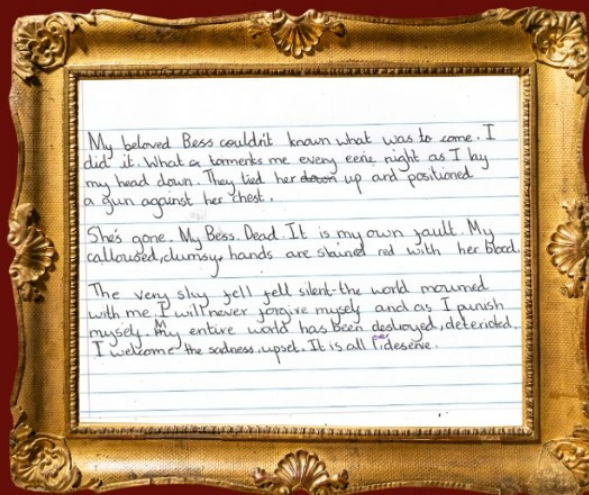 My beloved Bess couldn't known what was to come. I
did it. What a torments me every eerie night as I lay
my head down. They tied her down up and positioned
a gun against her chest.
She's gone. My Bess. Dead. It is my own fault. My
calloused, clumsy, hands are stained red with her blood.
The very sky fell fell silent-the world mourned
with me. I will never forgive myself and as I punish
myself. My entire world has been destroyed, deterioted.
I welcome the sadness, upset. It is all I deserve.